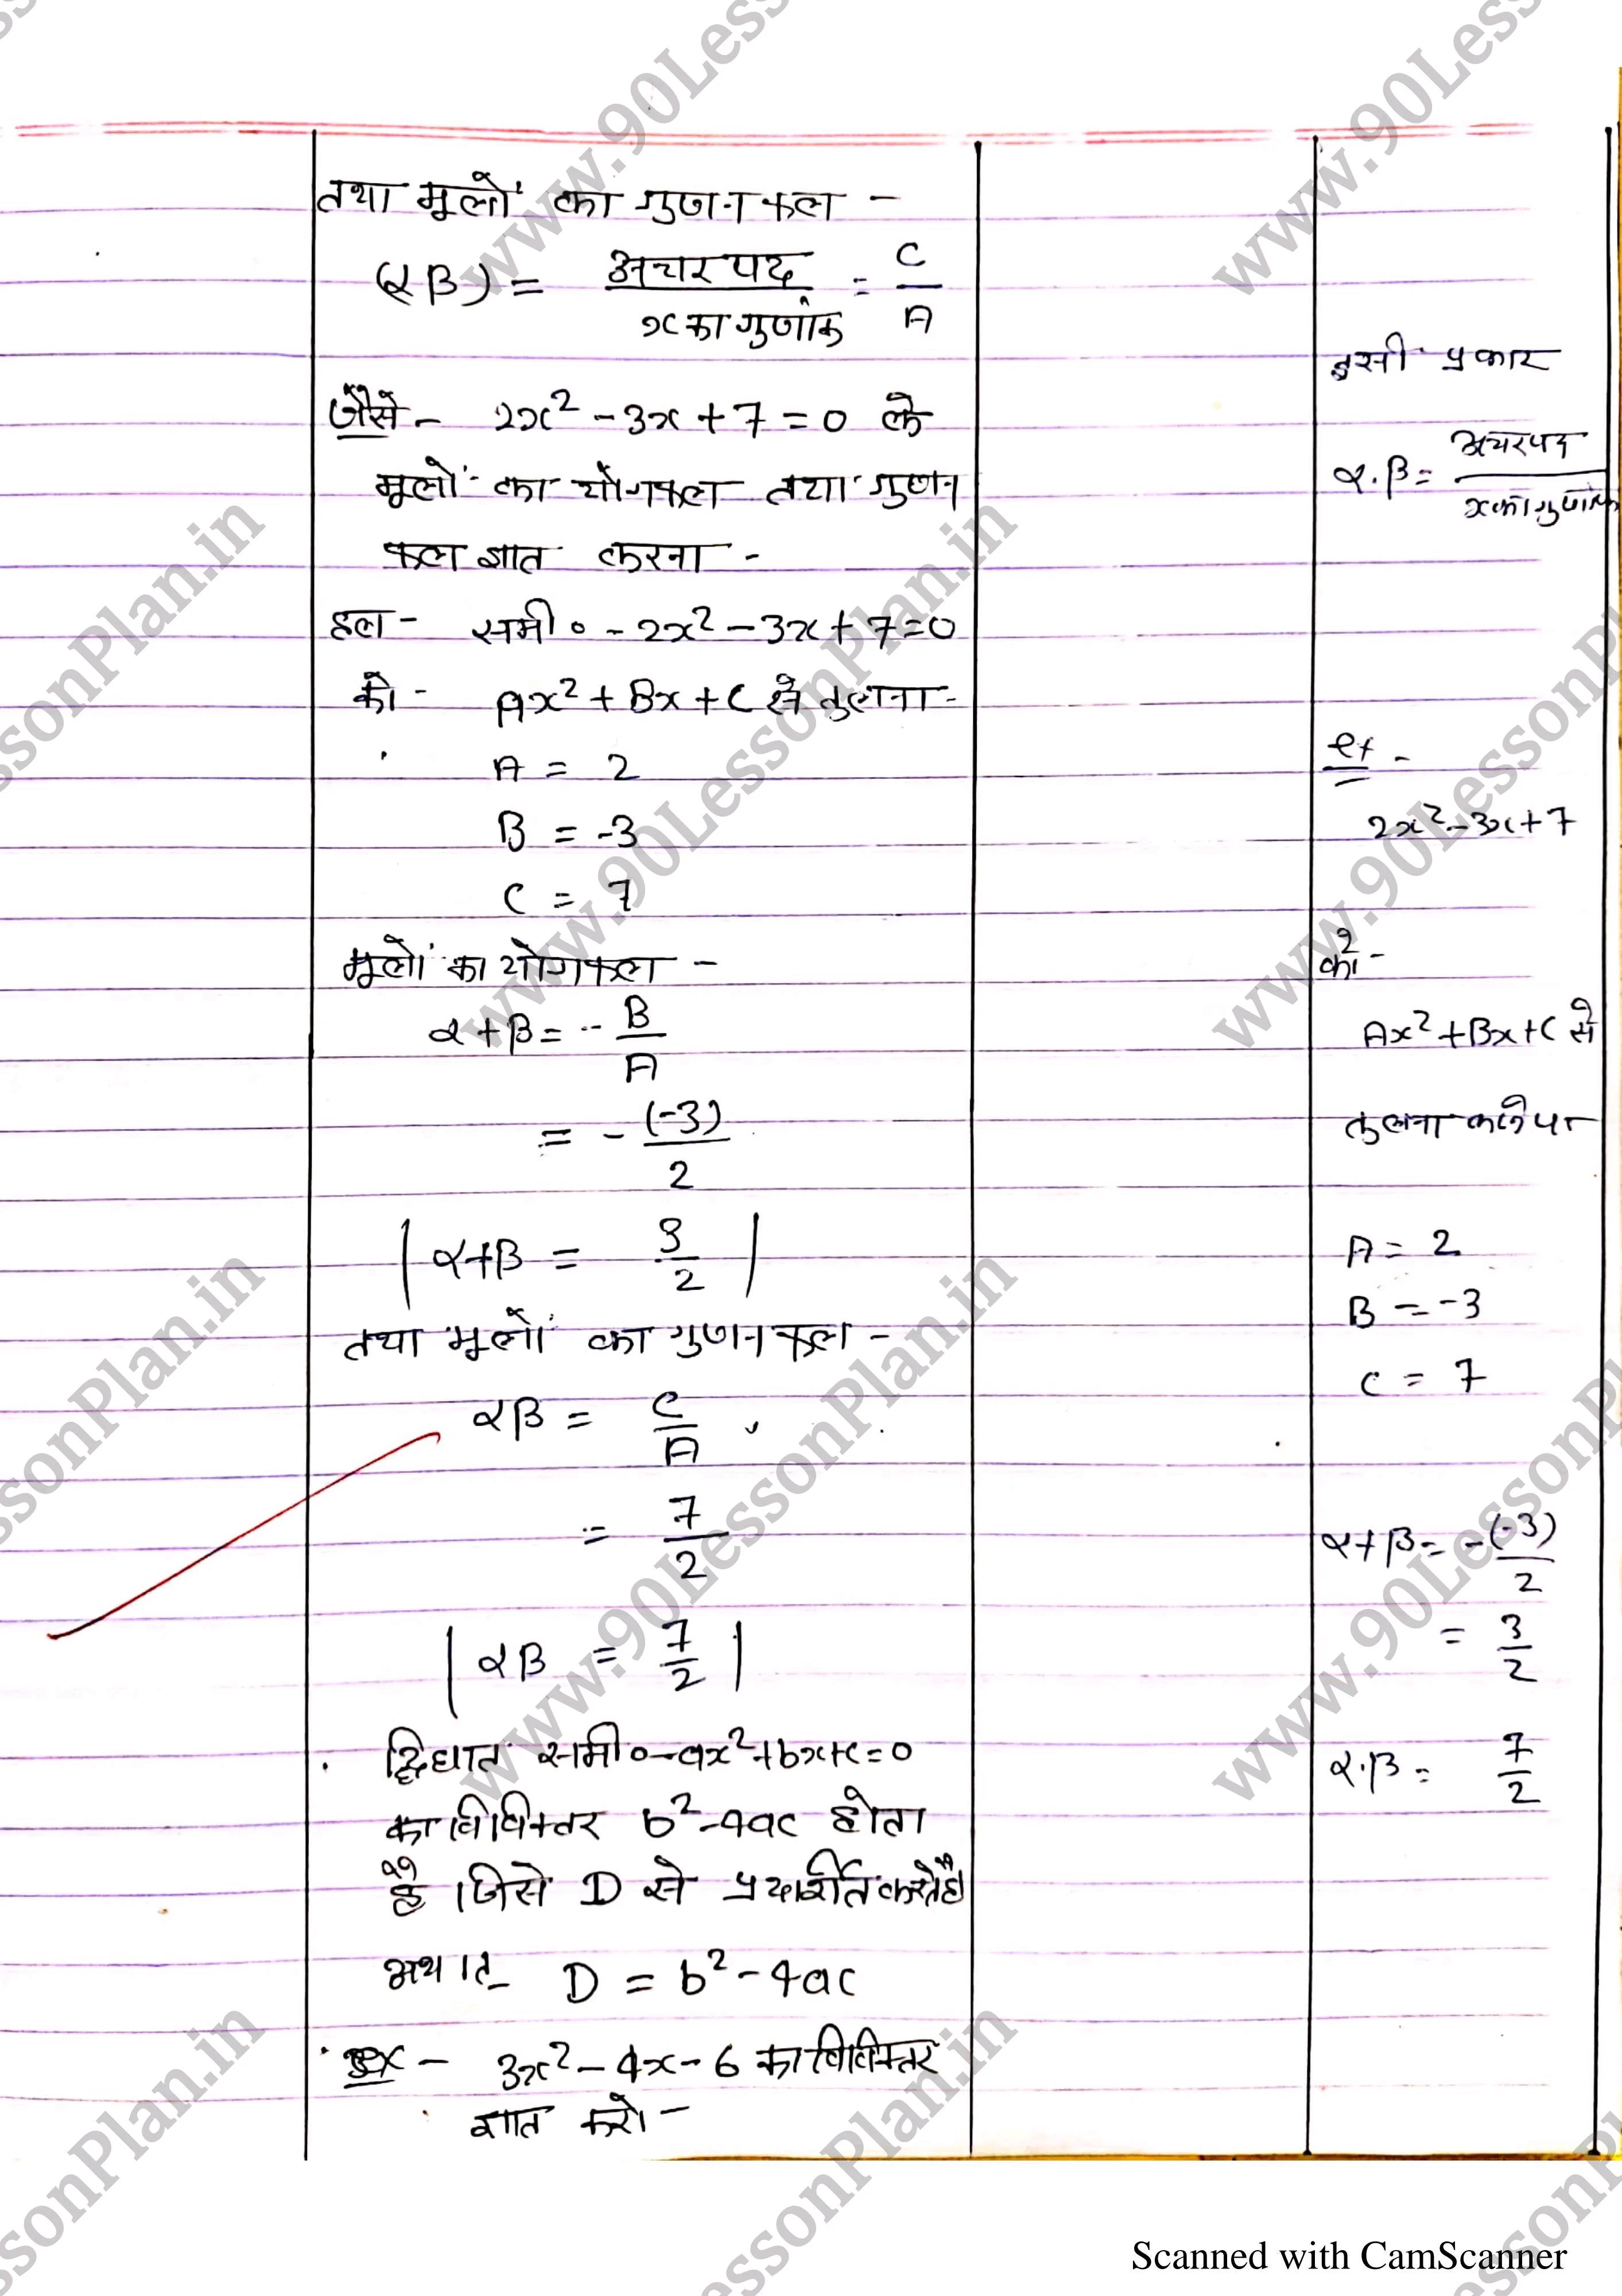 तथा मूलों का गुणनफल -
(αβ) = अचर पद / x का गुणांक = C / A
जैसे - 2x² - 3x + 7 = 0 के
मूलों का योगफल तथा गुणन
फल ज्ञात करना -
हल - समी॰ - 2x² - 3x + 7 = 0
को - Ax² + Bx + C से तुलना -
A = 2
B = -3
C = 7
मूलों का योगफल -
α + β = - B / A
= - (-3) / 2
| α+β = 3 / 2 |
तथा मूलों का गुणनफल -
αβ = C / A
= 7 / 2
| αβ = 7 / 2 |
द्विघात समी॰ - ax² + bx + c = 0
का विविक्तर b² - 4ac होता
है । जिसे D से प्रदर्शित करते है।
अर्थात - D = b² - 4ac
ex - 3x² - 4x - 6 का विविक्तर
ज्ञात करो -
इसी प्रकार
α.β = अचर पद / x का गुणांक
ex -
2x² - 3x + 7
को -
Ax² + Bx + C से
तुलना करने पर
A = 2
B = -3
C = 7
α + β = - (-3) / 2
= 3 / 2
α.β = 7 / 2
www.90LessonPlan.in
Scanned with CamScanner